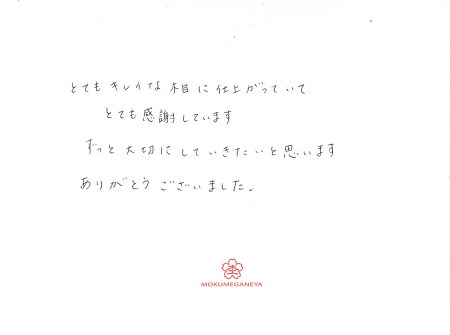 とても キレイな 木目に 仕上がっていて
とても感謝しています
ずっと 大切に していきたいと思います
ありがとう ございました。
MOKUMEGANEYA